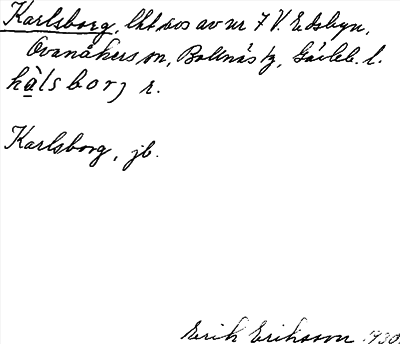 Karlsborg, lht sos av nr 7 V. Edsbyn,
Ovanåkers sn, Bollnäs tg, Gävleb. l.
hàlsborj r.
Karlsborg, jb.
Erik Eriksson 1930.